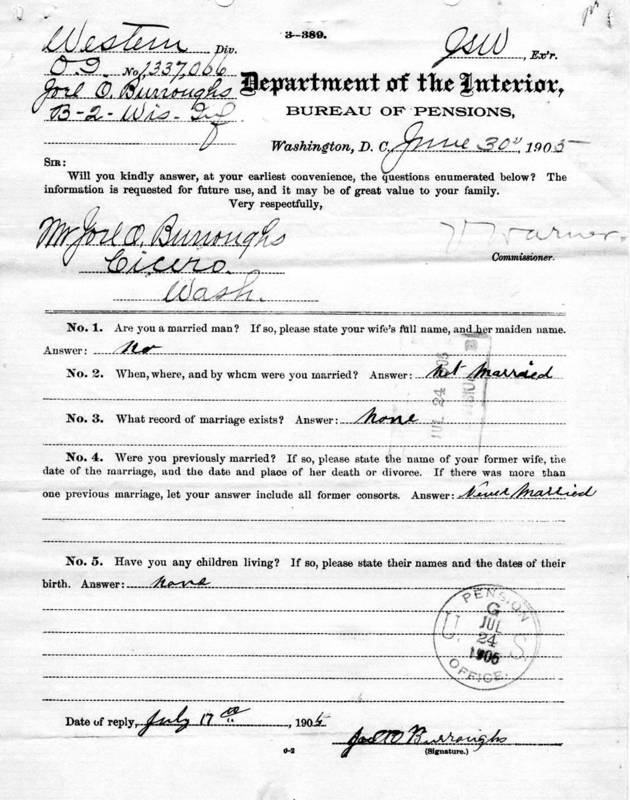 3—389.
Western Div.
JSW, Ex'r.
O I No. 1337,066
Joel O. Burroughs
B-2-Wis-Inf
Department of the Interior,
BUREAU OF PENSIONS,
Washington, D. C., June 30", 1905
SIR:
Will you kindly answer, at your earliest convenience, the questions enumerated below? The
information is requested for future use, and it may be of great value to your family.
Very respectfully,
Mr Joel O. Burroughs
Cicero.
Wash.
V Warner.
Commissioner.
No. 1. Are you a married man? If so, please state your wife's full name, and her maiden name.
Answer: No
No. 2. When, where, and by whom were you married? Answer: Not Married
No. 3. What record of marriage exists? Answer: None
JUL 24
No. 4. Were you previously married? If so, please state the name of your former wife, the
date of the marriage, and the date and place of her death or divorce. If there was more than
one previous marriage, let your answer include all former consorts. Answer: Never Married
No. 5. Have you any children living? If so, please state their names and the dates of their
birth. Answer: None
PENSION
G
U. S.
JUL
24
1905
OFFICE.
Date of reply, July 17th, 1905
Joel O Burroughs
6-2
(Signature.)